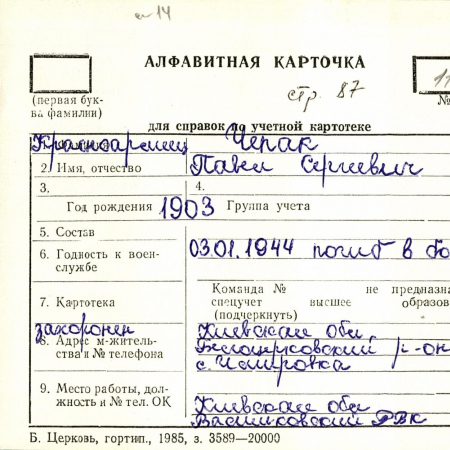 а-14
АЛФАВИТНАЯ КАРТОЧКА
(первая бук-
ва фамилии)
стр. 87
№
для справок по учетной картотеке
Красноармеец Черак
2. Имя, отчество Павел Сергеевич
3. 4.
Год рождения 1903 Группа учета
5. Состав
6. Годность к воен-
службе
03.01.1944 погиб в бо
7. Картотека
Команда № не предназна
спецучет высшее образов
(подчеркнуть)
захоронен Киевская обл.
8. Адрес м-житель-
ства и № телефона
Белоцерковский р-он
с. Чмировка
9. Место работы, дол-
жность и № тел. ОК
Киевская обл
Васильковский РВК
Б. Церковь, гортип., 1985, з. 3589—20000